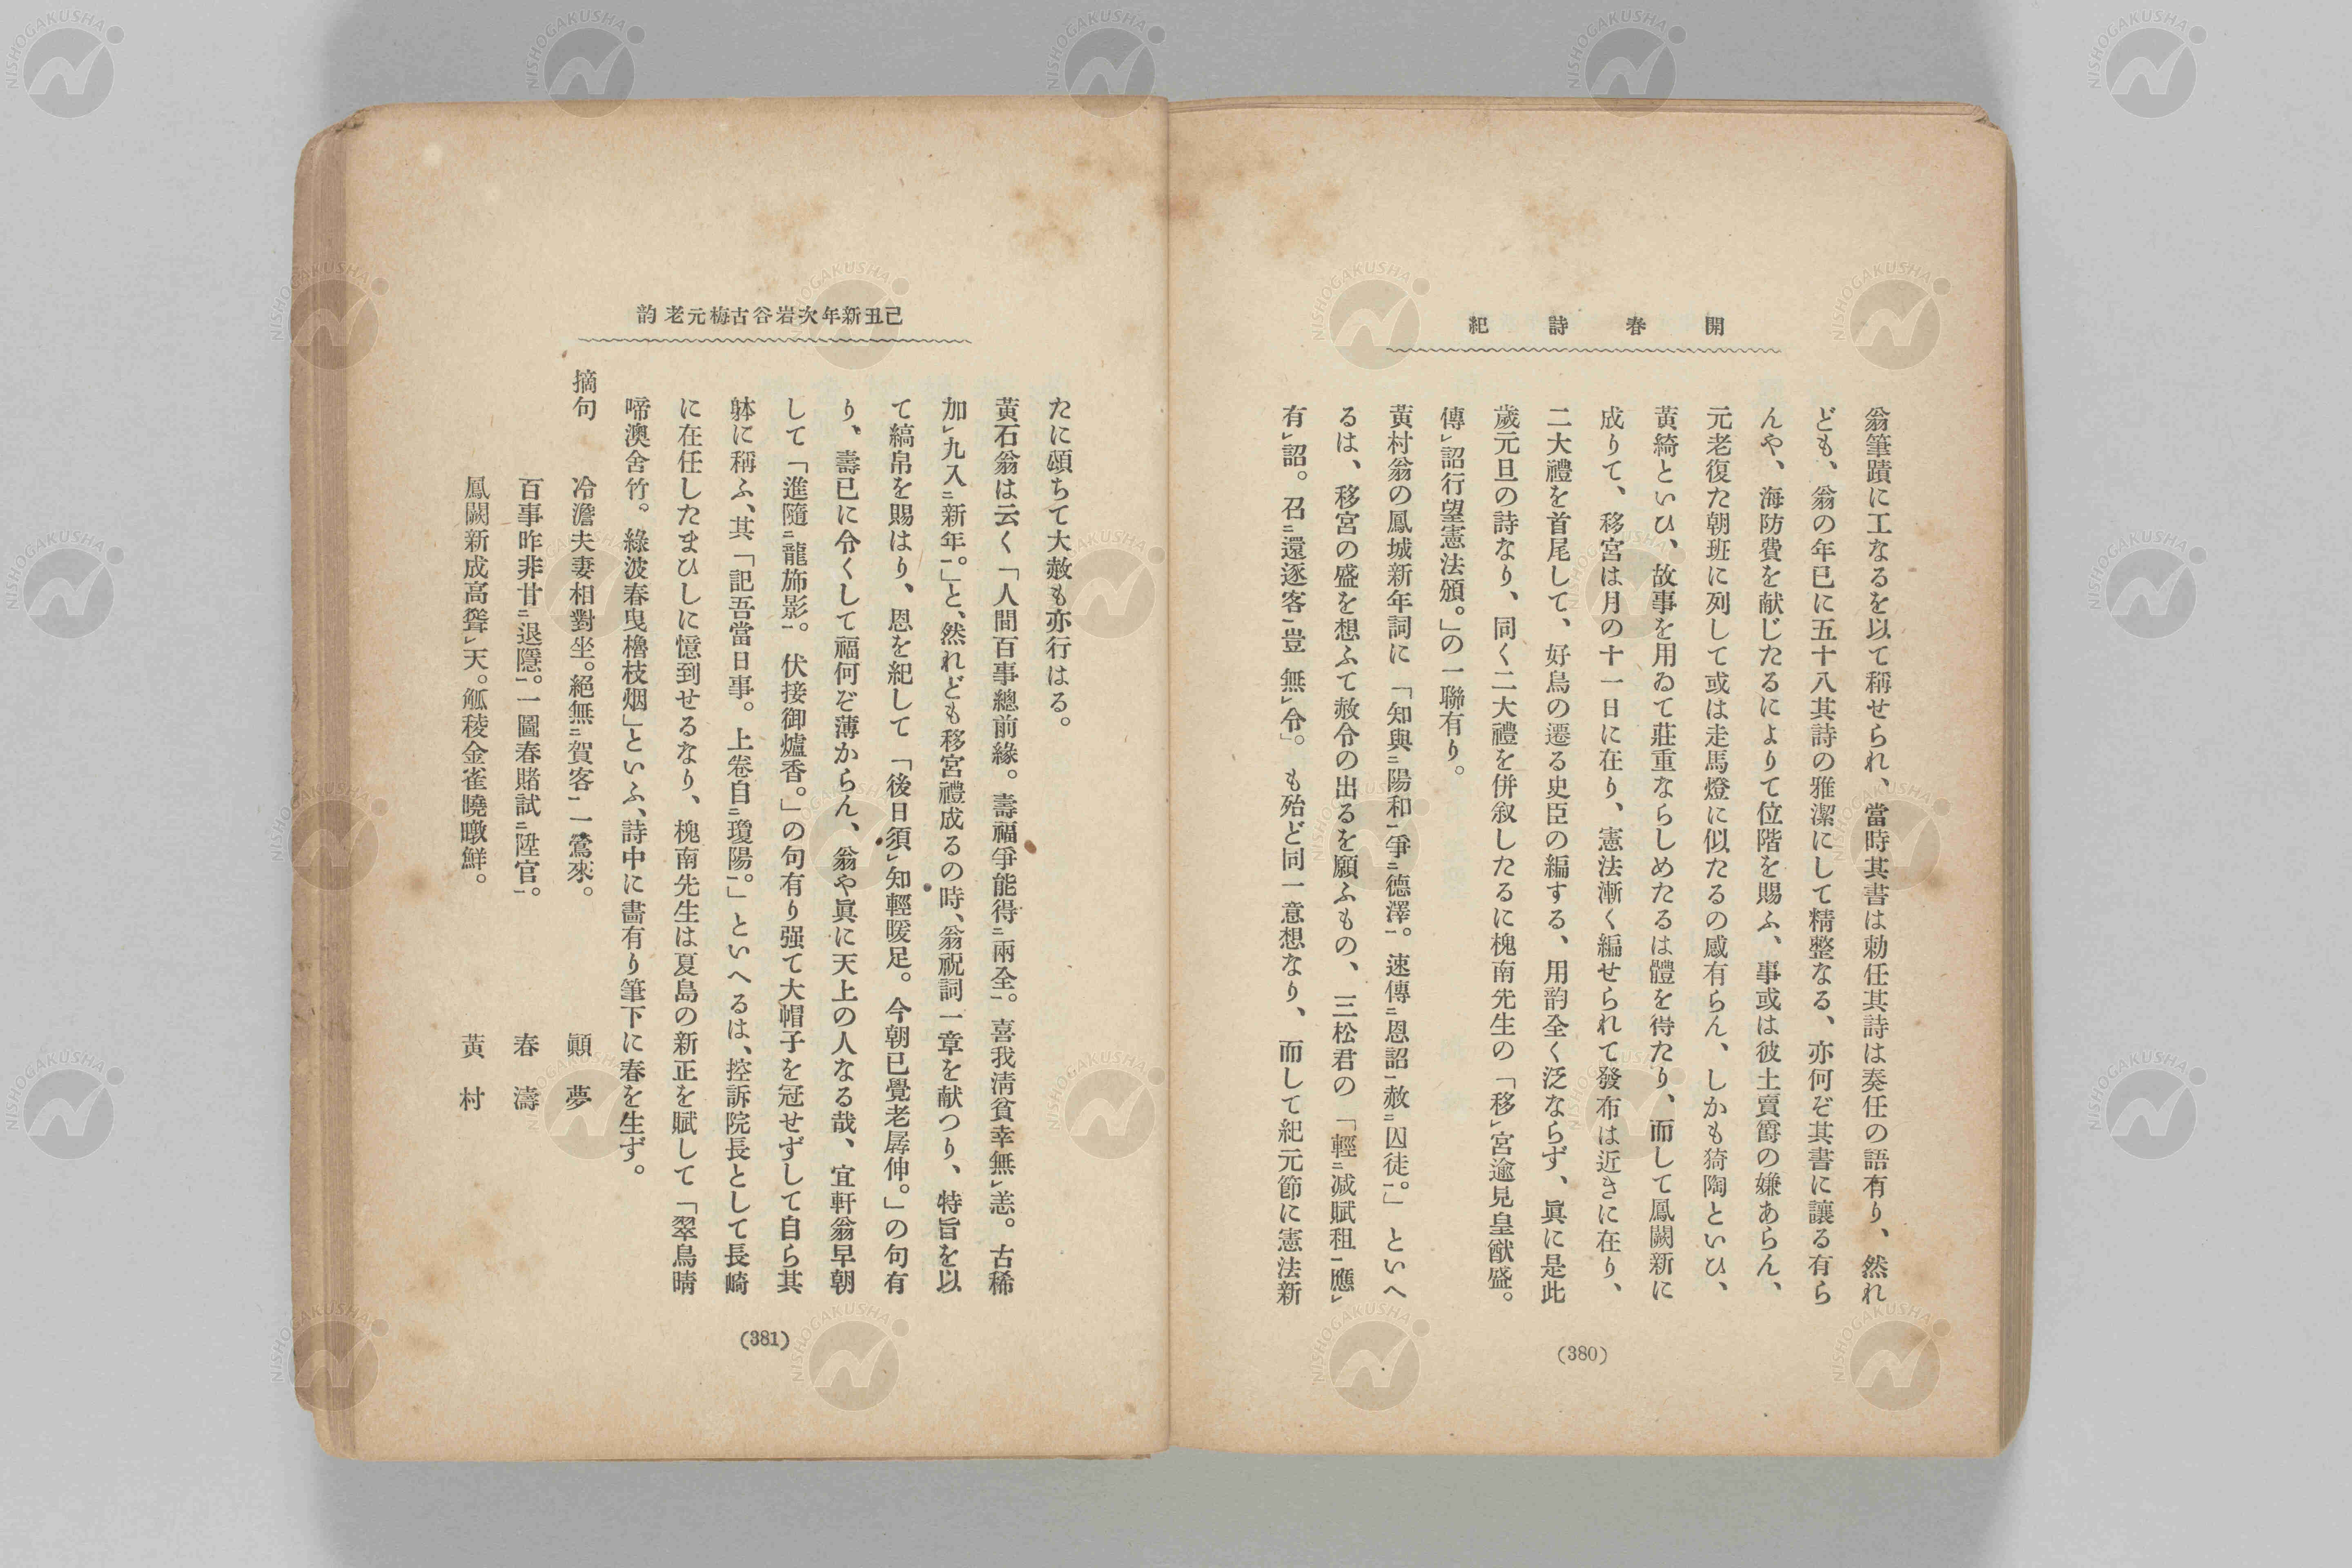 開春詩紀
翁筆蹟に工なるを以て稱せられ、當時其書は勅任其詩は奏任の語有り、然れ
ども、翁の年已に五十八其詩の雅潔にして精整なる、亦何ぞ其書に讓る有ら
んや、海防費を献じたるによりて位階を賜ふ、事或は彼土賣爵の嫌あらん、
元老復た朝班に列して或は走馬燈に似たるの感有らん、しかも猗陶といひ、
黄綺といひ、故事を用ゐて莊重ならしめたるは體を得たり、而して鳳闕新に
成りて、移宮は月の十一日に在り、憲法漸く編せられて發布は近きに在り、
二大禮を首尾して、好鳥の遷る史臣の編する、用韵全く泛ならず、眞に是此
歲元旦の詩なり、同く二大禮を併叙したるに槐南先生の「移レ宮逾見皇猷盛。
傳レ詔行望憲法頒。」の一聯有り。
黄村翁の鳳城新年詞に「知與二陽和一爭二德澤一。速傳二恩詔一赦二囚徒一。」といへ
るは、移宮の盛を想ふて赦令の出るを願ふもの、三松君の「輕二减賦租一應レ
有レ詔。召二還逐客一豈無レ令」。も殆ど同一意想なり、而して紀元節に憲法新
(380)
己丑新年次岩谷古梅元老韵
たに頒ちて大赦も亦行はる。
黄石翁は云く「人間百事總前緣。壽福爭能得二兩全一。喜我淸貧幸無レ恙。古稀
加レ九入二新年一。」と、然れども移宮禮成るの時、翁祝詞一章を献つり、特旨を以
て縞帛を賜はり、恩を紀して「後日須レ知輕暖足。今朝已覺老孱伸。」の句有
り、壽已に令くして福何ぞ薄からん、翁や眞に天上の人なる哉、宜軒翁早朝
して「進隨二龍旆影一。伏接御爐香。」の句有り强て大帽子を冠せずして自ら其
躰に稱ふ、其「記吾當日事。上卷自二瓊陽一。」といへるは、控訴院長として長崎
に在任したまひしに憶到せるなり、槐南先生は夏島の新正を賦して「翠鳥晴
啼澳舍竹。綠波春曳櫓枝烟」といふ、詩中に畵有り筆下に春を生ず。
摘句
冷澹夫妻相對坐。絕無二賀客一一鶯來。　顚夢
百事昨非甘二退隱一。一圖春賭試二陞官一。　春濤
鳳闕新成高聳レ天。觚稜金雀曉暾鮮。　黄村
(381)
NISHOGAKUSHA